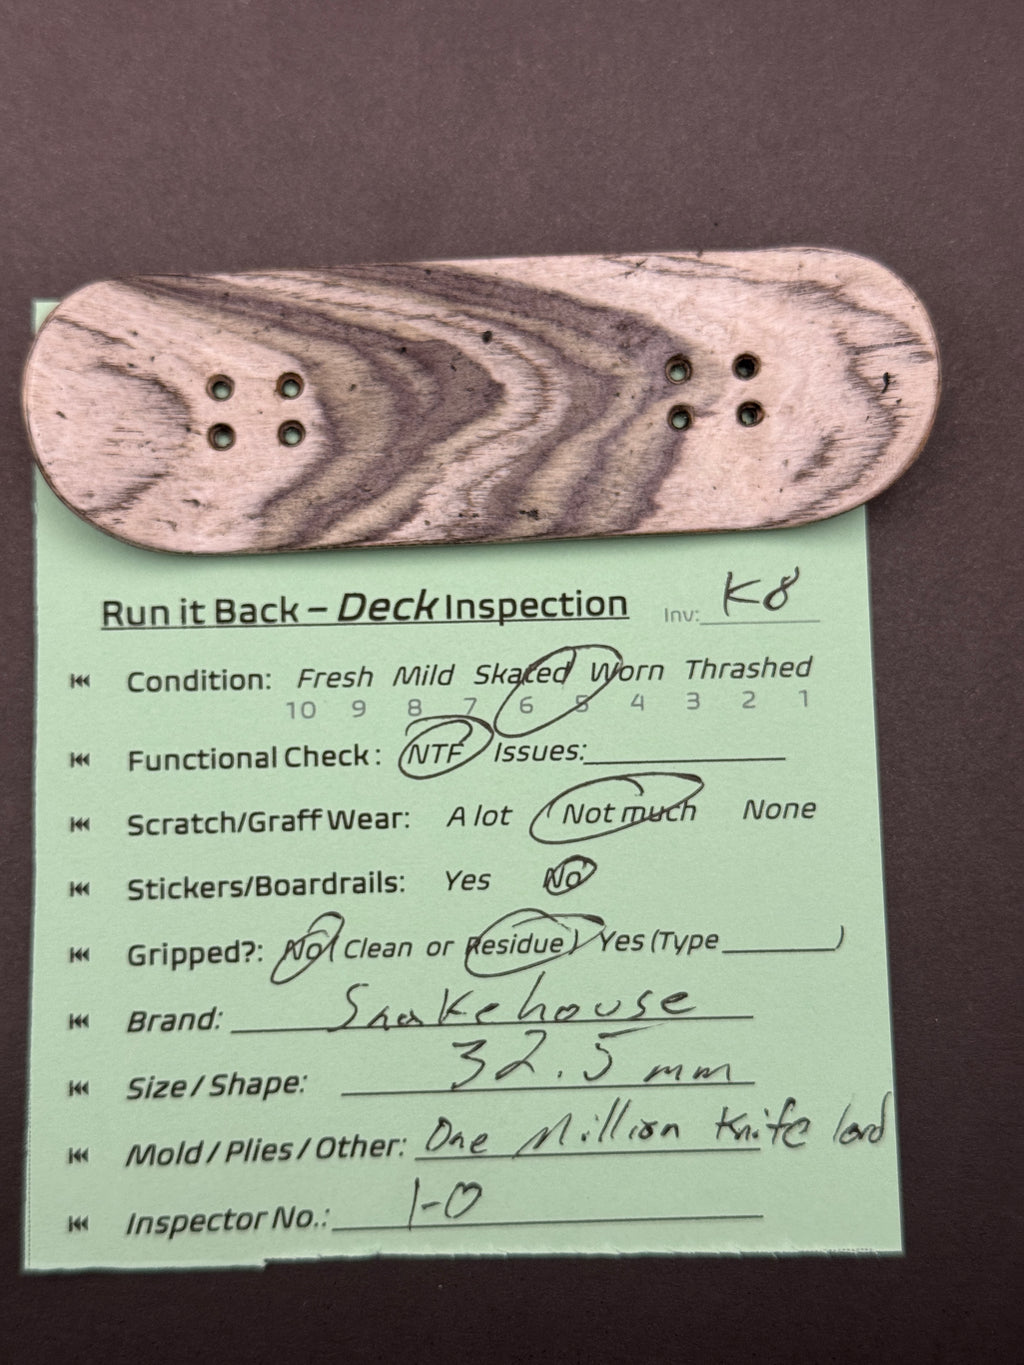 Run it Back – Deck Inspection Inv: K8
Condition: Fresh Mild Skated Worn Thrashed
10 9 8 7 6 5 4 3 2 1
Functional Check: NTF Issues:
Scratch/Graff Wear: A lot Not much None
Stickers/Boardrails: Yes No
Gripped?: No (Clean or Residue) Yes (Type )
Brand: Snakehouse
Size / Shape: 32.5 mm
Mold / Plies / Other: One Million Knife
Inspector No.: 1-0